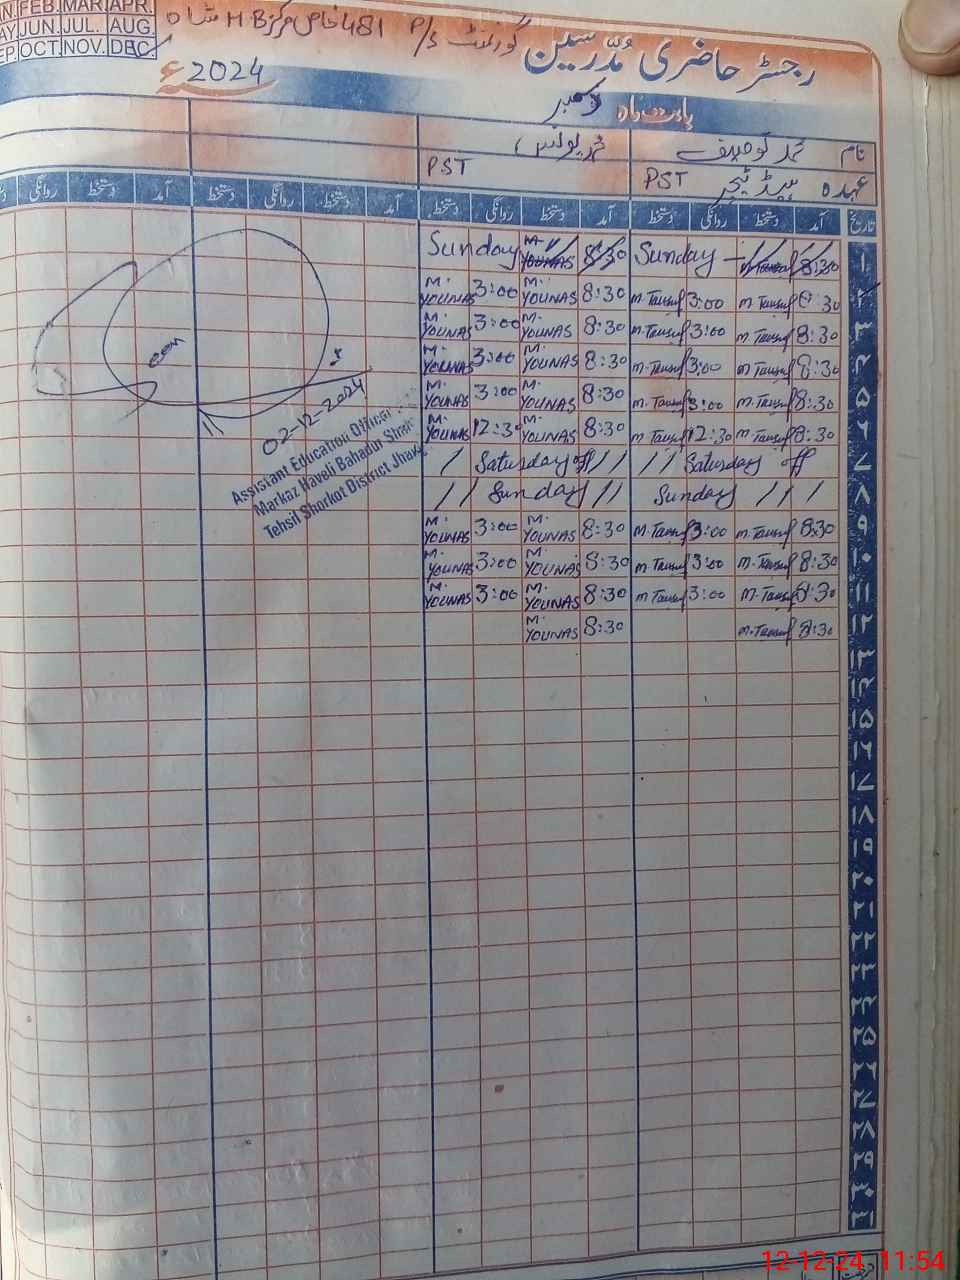 JAN. FEB. MAR. APR.
MAY. JUN. JUL. AUG.
SEP. OCT. NOV. DEC.
گورنمنٹ P/S 481 خاص مرکز H B شاہ
رجسٹر حاضری مُدرّسین
2024 سنہ ء
بابت ماہ دسمبر
نام محمد توصیف محمد یونس
عہدہ ہیڈ ٹیچر PST PST
تاریخ آمد دستخط روانگی دستخط آمد دستخط روانگی دستخط آمد دستخط روانگی دستخط آمد دستخط روانگی
۱ 8:30 Sunday 8:30 M. YOUNAS Sunday
۲ 8:30 M.Tausif 3:00 M.Tausif 8:30 M. YOUNAS 3:00 M. YOUNAS
۳ 8:30 M.Tausif 3:00 M.Tausif 8:30 M. YOUNAS 3:00 M. YOUNAS
۴ 8:30 M.Tausif 3:00 M.Tausif 8:30 M. YOUNAS 3:00 M. YOUNAS
۵ 8:30 M.Tausif 3:00 M.Tausif 8:30 M. YOUNAS 3:00 M. YOUNAS
۶ 8:30 M.Tausif 12:30 M.Tausif 8:30 M. YOUNAS 12:30 M. YOUNAS
۷ Saturday off Saturday off
۸ Sunday Sunday
۹ 8:30 M.Tausif 3:00 M.Tausif 8:30 M. YOUNAS 3:00 M. YOUNAS
۱۰ 8:30 M.Tausif 3:00 M.Tausif 8:30 M. YOUNAS 3:00 M. YOUNAS
۱۱ 8:30 M.Tausif 3:00 M.Tausif 8:30 M. YOUNAS 3:00 M. YOUNAS
۱۲ 8:30 M.Tausif 8:30 M. YOUNAS
۱۳
۱۴
۱۵
۱۶
۱۷
۱۸
۱۹
۲۰
۲۱
۲۲
۲۳
۲۴
۲۵
۲۶
۲۷
۲۸
۲۹
۳۰
۳۱
02-12-2024
Assistant Education Officer
Markaz Haveli Bahadur Shah
Tehsil Shorkot District Jhang
12-12-24 11:54